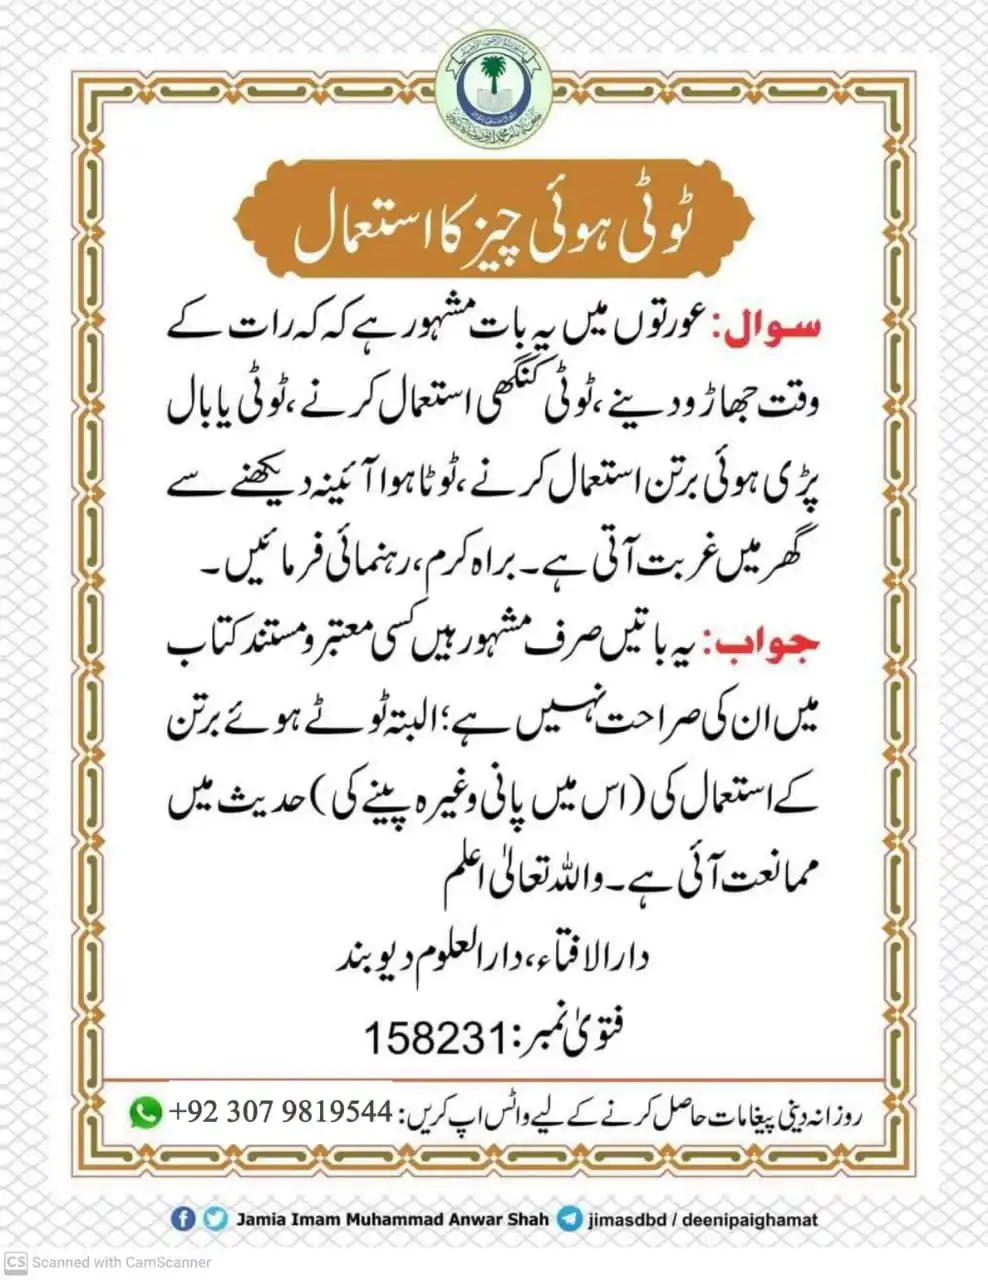 ٹوٹی ہوئی چیز کا استعمال
سوال: عورتوں میں یہ بات مشہور ہے کہ کہ رات کے
وقت جھاڑو دینے، ٹوٹی کنگھی استعمال کرنے، ٹوٹی یا بال
پڑی ہوئی برتن استعمال کرنے، ٹوٹا ہوا آئینہ دیکھنے سے
گھر میں غربت آتی ہے۔ براہ کرم، رہنمائی فرمائیں۔
جواب: یہ باتیں صرف مشہور ہیں کسی معتبر و مستند کتاب
میں ان کی صراحت نہیں ہے؛ البتہ ٹوٹے ہوئے برتن
کے استعمال کی (اس میں پانی وغیرہ پینے کی) حدیث میں
ممانعت آئی ہے۔ واللہ تعالیٰ اعلم
دارالافتاء، دارالعلوم دیوبند
فتویٰ نمبر: 158231
روزانہ دینی پیغامات حاصل کرنے کے لیے واٹس اپ کریں: +92 307 9819544
Jamia Imam Muhammad Anwar Shah jimasdbd / deenipaighamat
CS Scanned with CamScanner